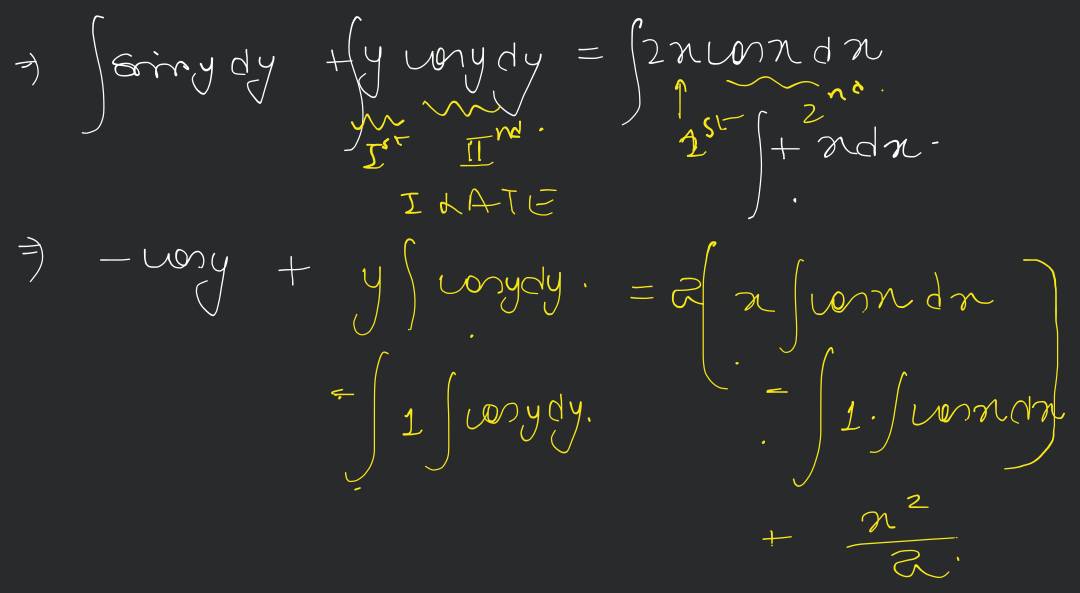 ⇒ ∫ sin y dy + ∫ y cos y dy = ∫ 2x cos x dx
Ist IInd . 1st 2nd .
∫ + x dx .
I L A T E
⇒ - cos y + y ∫ cos y dy . = 2 [ x ∫ cos x dx
- ∫ 1 ∫ cos y dy . - ∫ 1 . ∫ cos x dx ]
+ x² / 2 .